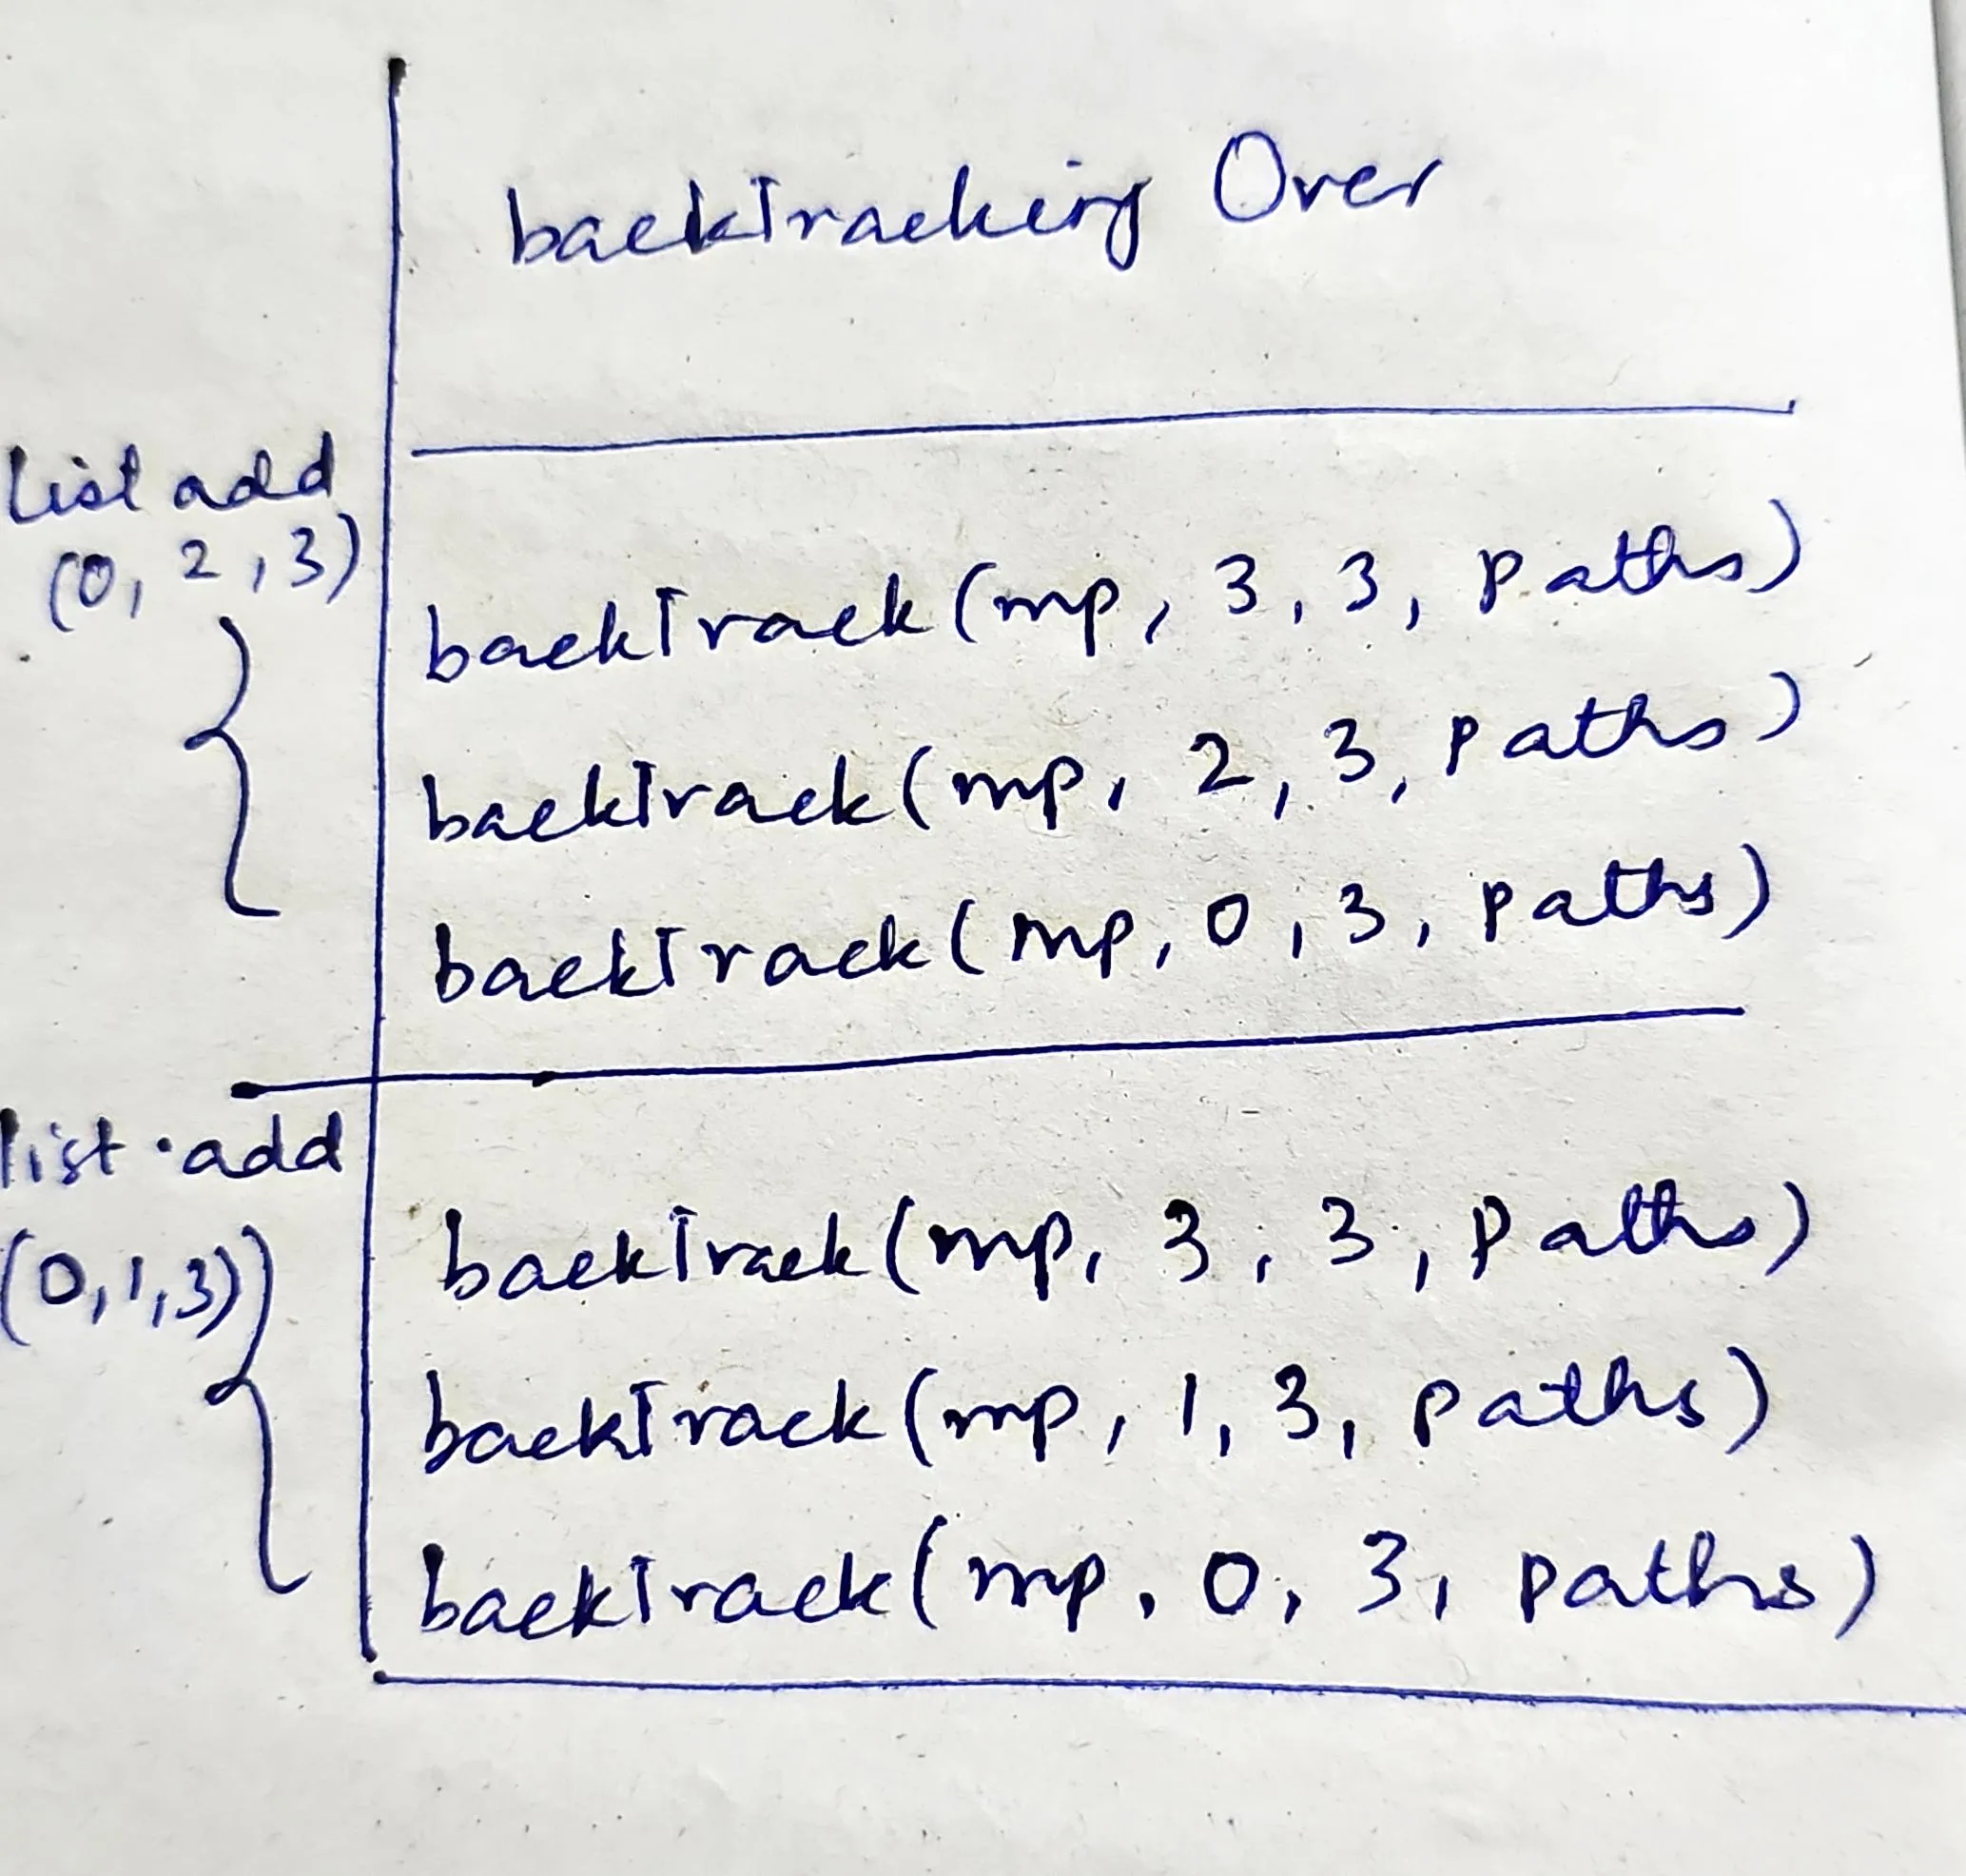 backTracking Over
list add
(0, 2, 3)
backTrack (mp, 3, 3, paths)
backTrack (mp, 2, 3, paths)
backTrack (mp, 0, 3, paths)
list.add
(0,1,3)
backTrack (mp, 3, 3, paths)
backTrack (mp, 1, 3, paths)
backTrack (mp, 0, 3, paths)